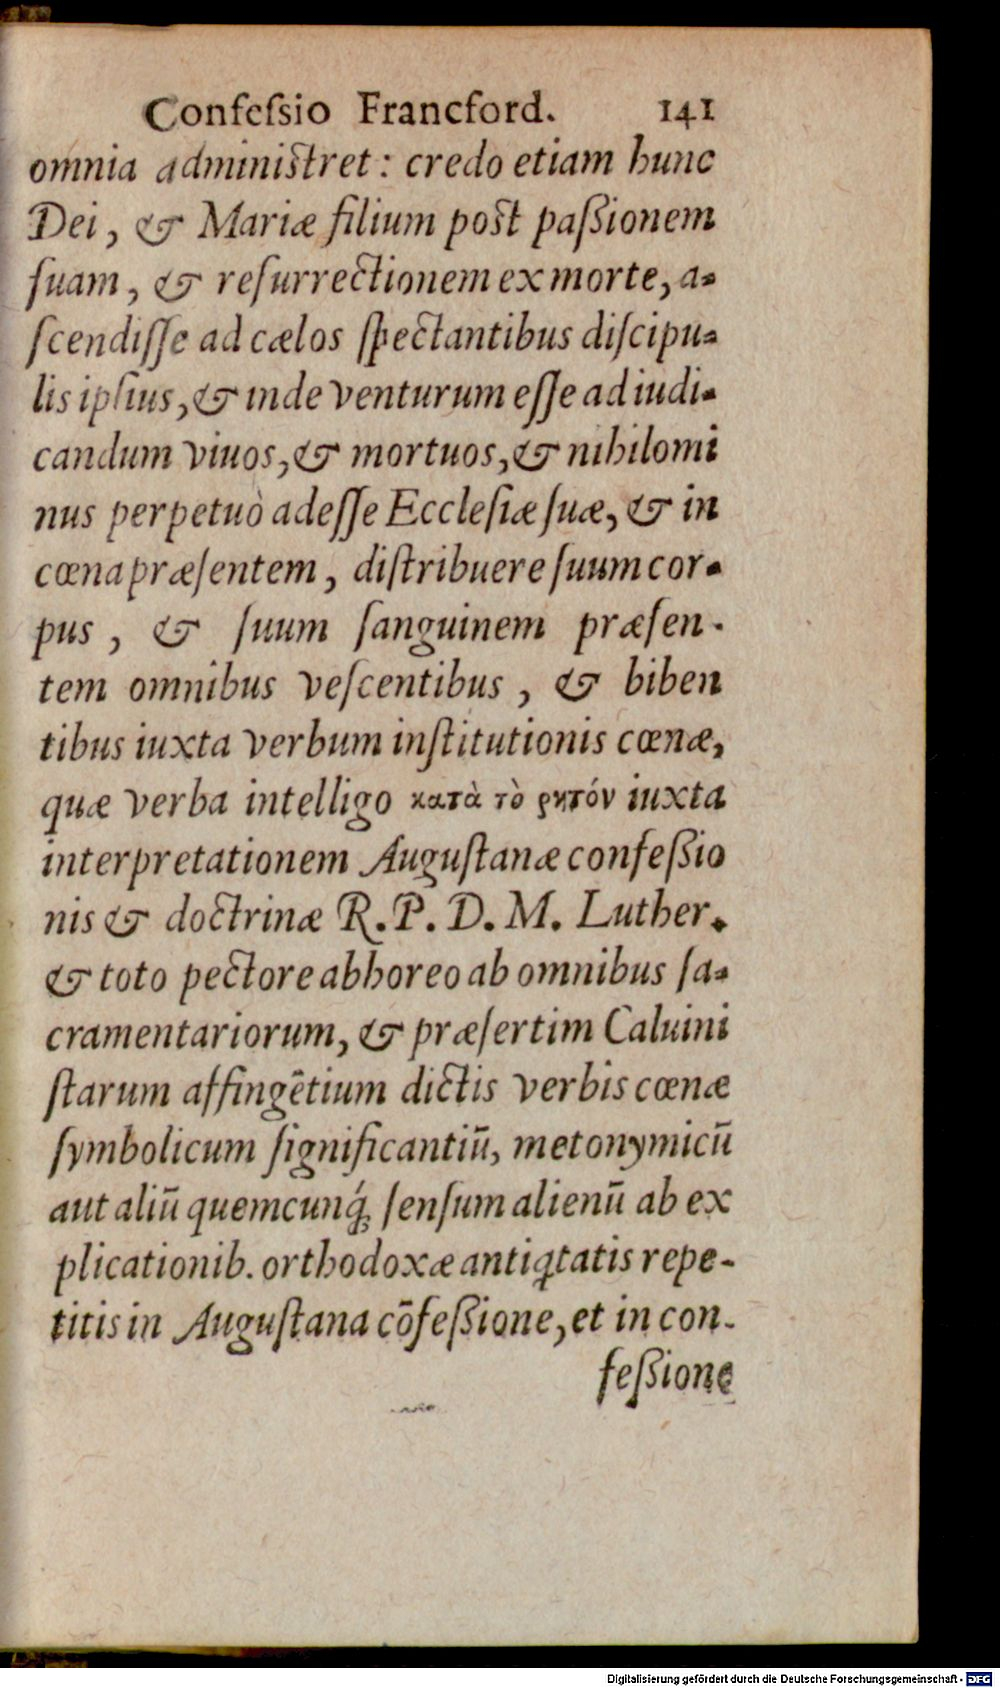 Confeſsio Francford. 141
omnia adminiſtret: credo etiam hunc
Dei, & Mariæ filium poſt paßionem
ſuam, & reſurrectionem ex morte, a-
ſcendiſſe ad cælos ſpectantibus diſcipu-
lis ipſius, & inde venturum eſſe ad iudi-
candum viuos, & mortuos, & nihilomi
nus perpetuò adeſſe Eccleſiæ ſuæ, & in
cœna præſentem, diſtribuere ſuum cor-
pus, & ſuum ſanguinem præſen-
tem omnibus veſcentibus, & biben
tibus iuxta verbum inſtitutionis cœnæ,
quæ verba intelligo κατὰ τὸ ρητόν iuxta
interpretationem Auguſtanæ confeßio
nis & doctrinæ R. P. D. M. Luther.
& toto pectore abhoreo ab omnibus ſa-
cramentariorum, & præſertim Caluini
ſtarum affingētium dictis verbis cœnæ
ſymbolicum ſignificantiū, metonymicū
aut aliū quemcunq́; ſenſum alienū ab ex
plicationib. orthodoxæ antiq̓tatis repe-
titis in Auguſtana cōfeßione, et in con-
feßione
Digitalisierung gefördert durch die Deutsche Forschungsgemeinschaft - DFG